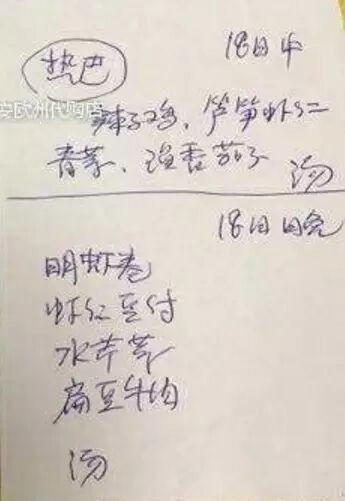 18日中
热巴
辣子鸡、芦笋虾仁
青菜、渔香茄子
汤
18日晚
明虾卷
虾仁豆付
水芹菜
扁豆牛肉
汤
欧洲代购店